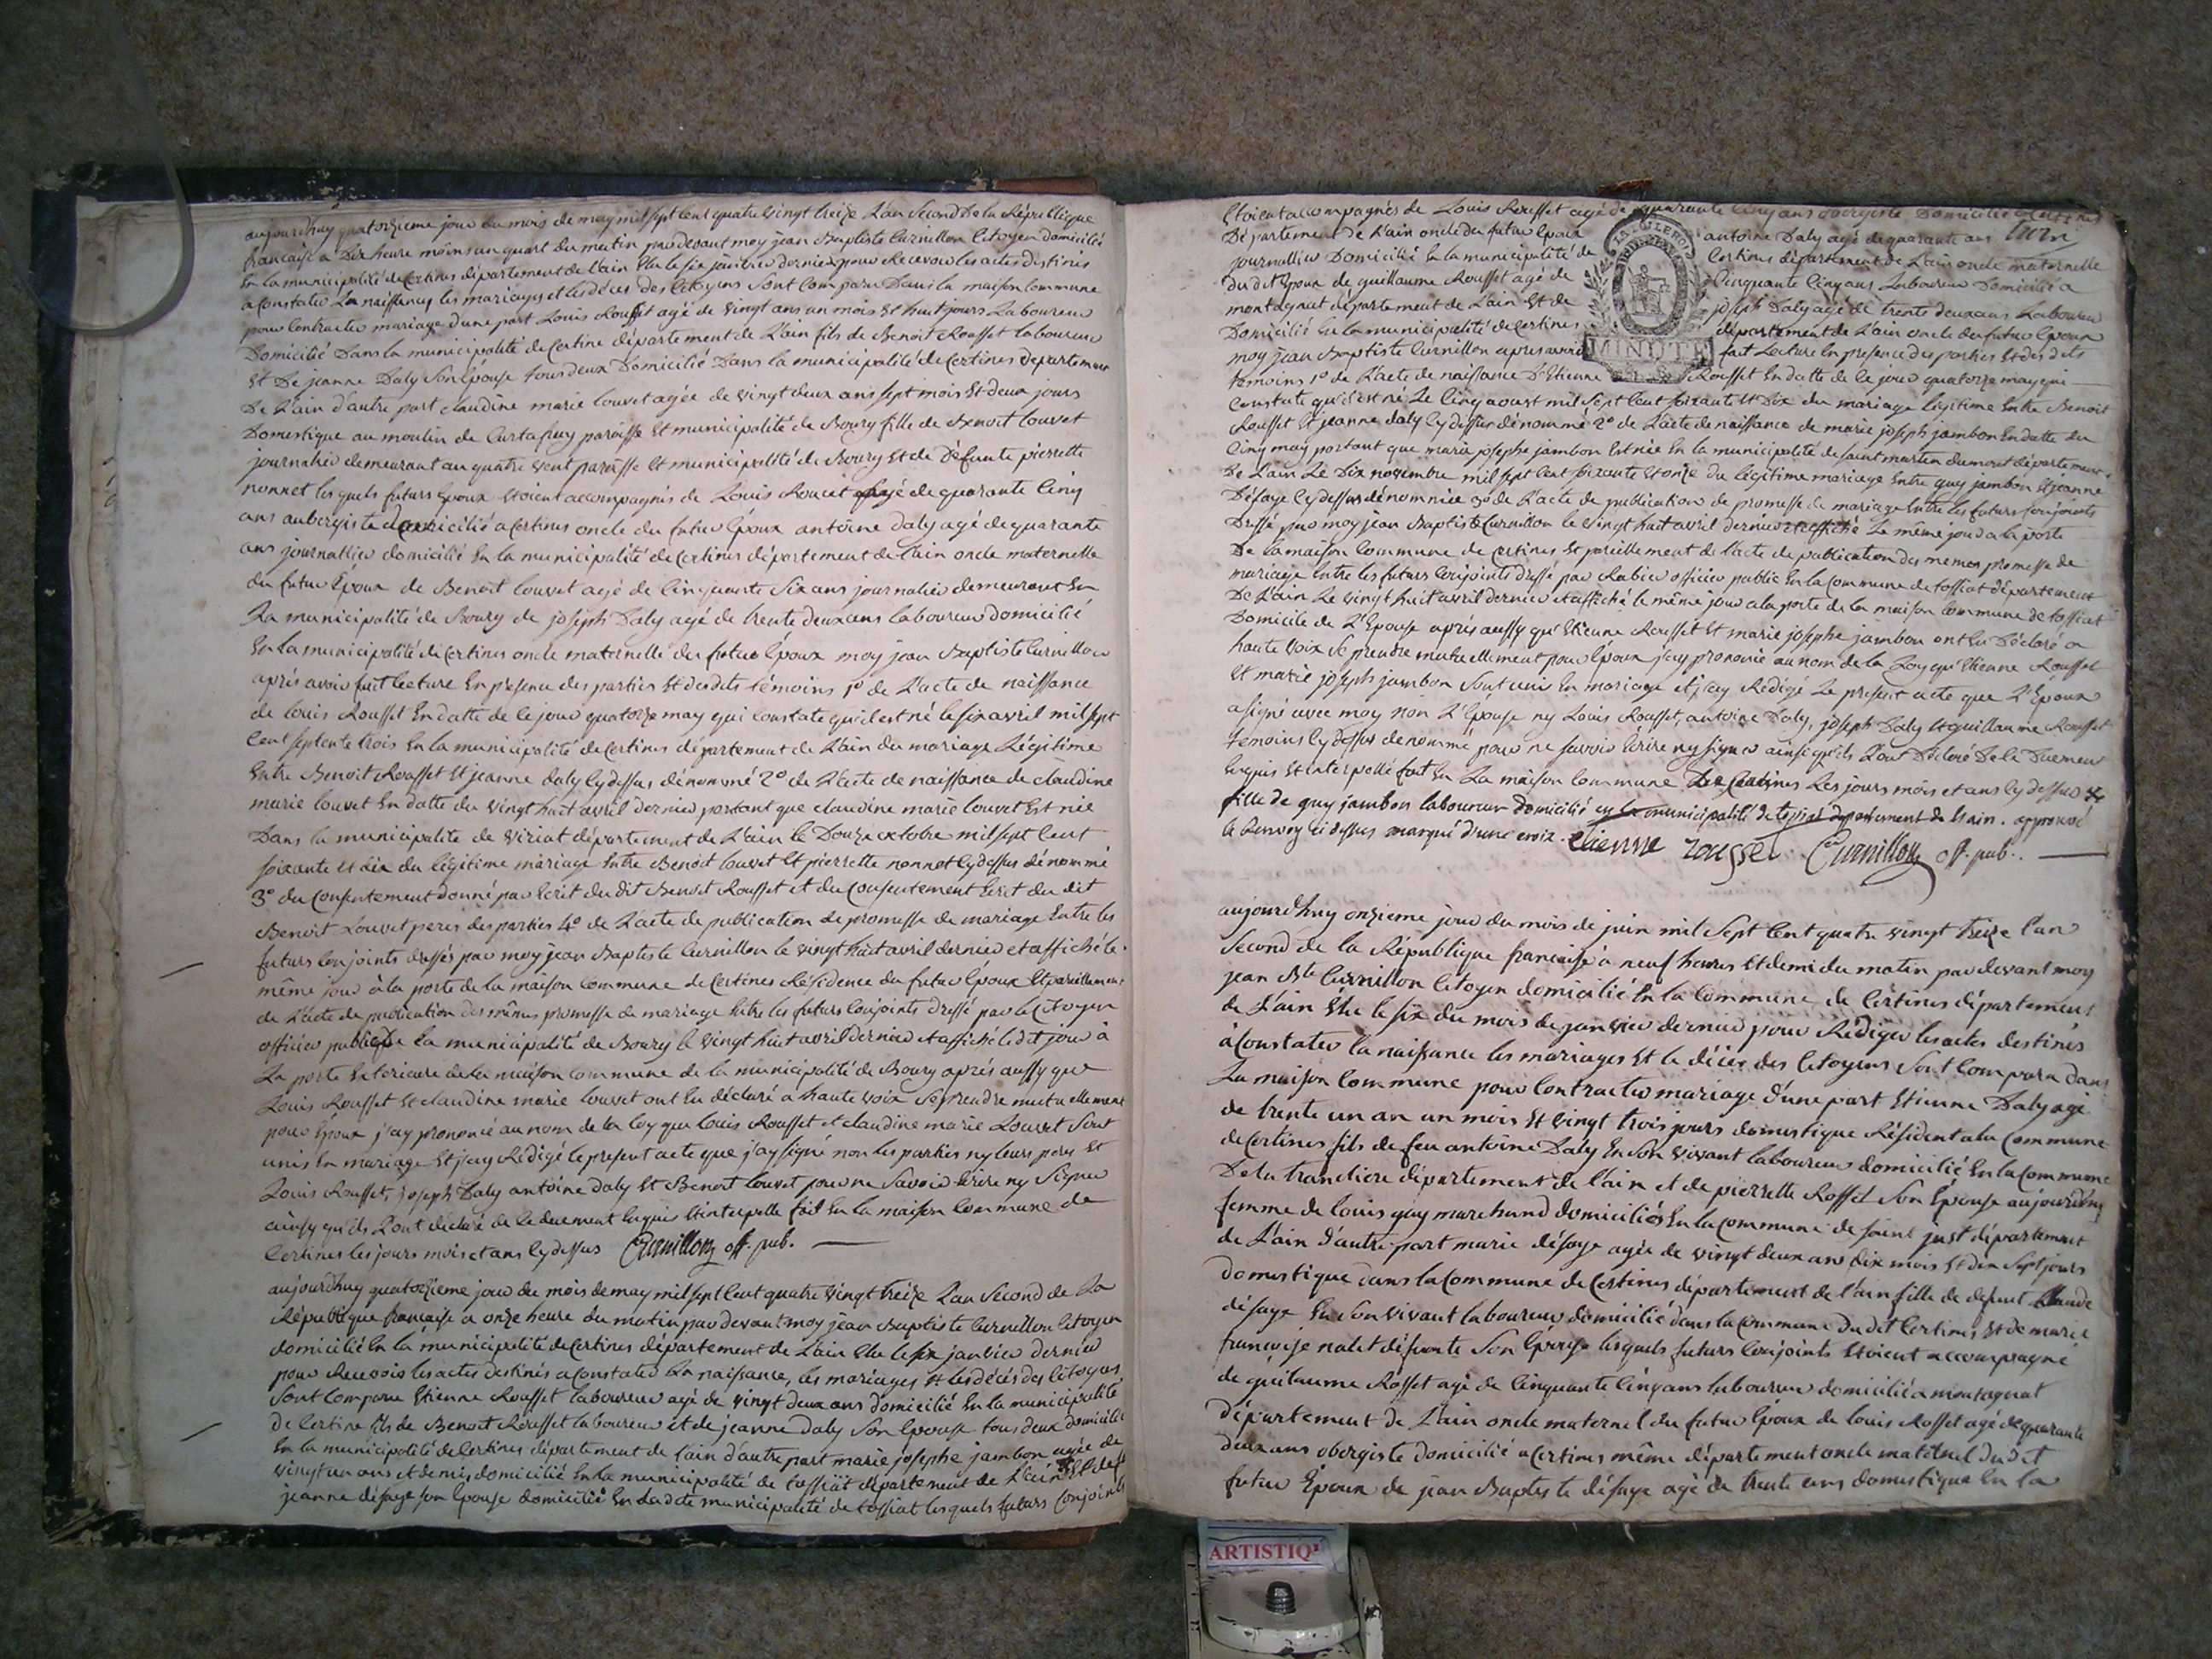 aujourdhuy quatorzieme jour du mois de may mil sept cent quatre vingt treize L'an Second De la République
francaise a Dix heure moins un quart du matin par devant moy jean Baptiste Curnillon Citoyen domicilié
En la municipalité de Certines département de L'ain Elu le six janvier dernier pour Recevoir les actes destinés
a Constater La naissances les mariages et les décès des Citoyens Sont Comparu Dans la maison Commune
pour Contracter mariage d'une part Louis Rousset agé de vingt ans un mois et huit jours Laboureur
Domicilié Dans la municipalité de Certine département de L'ain fils de Benoit Rousset laboureur
Et De jeanne Daly Son Epouse tous deux Domicilié Dans la municipalité de Certines département
De L'ain d'autre part claudine marie louvet agée de vingt deux ans sept mois Et deux jours
Domestique au moulin de Curtafray paroisse Et municipalité de Bourg fille de Benoit louvet
journalier demeurant au quatre vent paroisse Et municipalité de Bourg Et de Défunte pierrette
nonnet lesquels futurs Epoux Etoient accompagnés de Louis agé de quarante Cinq
ans aubergiste domicilié a Certines oncle du futur Epoux antoine daly agé de quarante
ans journallier domicilié En la municipalité de Certines département de lain oncle maternelle
du futur Epoux de Benoit louvet agé de Cinquante Six ans journalier demeurant En
La municipalité de Bourg de joseph Daly agé de trente deux ans laboureur domicilié
En la municipalité de Certines oncle maternelle du futur Epoux moy jean Baptiste Curnillon
après avoir fait lecture En presence des parties Et des dits témoins 1º de L'acte de naissance
de louis Rousset En datte de le jour quatorze may qui Constate qu'il est né le six avril mil sept
Cent septente trois En la municipalité de Certines département de L'ain du mariage Légitime
Entre Benoit Rousset Et jeanne daly Cy dessus dénommé 2º de L'acte de naissance de claudine
marie louvet En datte du vingt huit avril dernier portant que claudine marie louvet Est née
Dans la municipalité de viriat département de L'ain le Douze octobre mil sept Cent
soixante et dix du légitime mariage Entre Benoit louvet Et pierrette nonnet Cy dessus dénommé
3º du Consentement donné par Ecrit du dit Benoit Rousset et du Consentement Ecrit du dit
Benoit Louvet peres des parties 4º de L'acte de publication de promesse de mariage Entre les
futurs Conjoints dressés par moy jean Baptiste Curnillon le vingt huit avril dernier et affiché le
même jour à la porte de la maison Commune de Certines Résidence du futur Epoux Et pareillement
de L'acte de publication des mêmes promesse de mariage Entre les futurs Conjoints dressé par le Citoyen
officier public de La municipalité de Bourg le vingt huit avril dernier et affiché le dit jour à
La porte Exterieure de la maison Commune de la municipalité de Bourg après aussy que
Louis Rousset Et claudine marie louvet ont Eu déclaré a haute voix Se prendre mutuellement
pour Epoux j'ay prononcé au nom de la loy que louis Rousset et claudine marie Louvet Sont
unis En mariage Et j'ay Rédigé le present acte que j'ay signé non les parties ny leurs peres Et
Louis Rousset, joseph Daly antoine daly Et Benoit louvet pour ne Savoir Ecrire ny Signer
ainsy qu'ils L'ont déclaré de Ce duement Enquis Et interpellé fait En la maison Commune de
Certines les jours mois et ans Cy dessus Curnillon off. pub.
aujourdhuy quatorzieme jour du mois de may mil sept Cent quatre vingt treize L'an Second de La
République francaise a onze heure du matin par devant moy jean Baptiste Curnillon Citoyen
domicilié En la municipalité de Certines département de L'ain Elu le six janvier dernier
pour Recevoir les actes destinés a Constater La naissance, les mariages Et les décès des Citoyens
Sont Comparu Etienne Rousset laboureur agé de vingt deux ans domicilié En la municipalité
De Certine fils de Benoit Rousset laboureur et de jeanne daly Son Epouse tous deux domicilié
En la municipalité de Certines département de l'ain d'autre part marie josephe jambon agée de
vingt un ans et demis domicilié En la municipalité de tossiat département de L'ain Et de
jeanne désaye son Epouse domicilié En la dite municipalité de tossiat lesquels futurs Conjoints
Etoient accompagnés de Louis Rousset agé de quarante Cinq ans obergiste Domicilié a Certines
Département de L'ain oncle du futur Epoux antoine Daly agé de quarante ans
journallier Domicilié En la municipalité de Certines département de L'ain oncle maternelle
du dit Epoux de guillaume Rousset agé de Cinquante Cinq ans Laboureur Domicilié a
montagnat département de L'ain Et de joseph Daly agé de trente deux ans Laboureur
Domicilié En la municipalité de Certines département de L'ain oncle du futur Epoux
moy jean Baptiste Curnillon apres avoir fait Lecture En presence des parties Et des dits
MINUTE
témoins 1º de L'acte de naissance D'Etienne Rousset En datte de le jour quatorze may qui
Constate qu'il est né Le Cinq aoust mil Sept Cent soixante Et Dix du mariage légitime Entre Benoit
Rousset Et jeanne daly Cy dessus dénommé 2º de L'acte de naissance de marie joseph jambon En datte du
Cinq may portant que marie josephe jambon Est née En la municipalité de saint martin dumont département
De L'ain Le Dix novembre mil sept Cent soixante Et onze du légitime mariage Entre guy jambon Et jeanne
Désaye Cy dessus dénommée 3º de L'acte de publication de promesse de mariage Entre les futurs Conjoints
Dressé par moy jean Baptiste Curnillon le vingt huit avril dernier et affiché Le même jour a la porte
De la maison Commune de Certines Et pareillement de l'acte de publication des memes promesse de
mariage Entre les futurs Conjoints dressé par Rabier officier public En la Commune de tossiat département
De L'ain Le vingt huit avril dernier et affiché le même jour a la porte de la maison Commune de tossiat
Domicile de L'Epouse après aussy qu'Etienne Rousset Et marie josephe jambon ont Eu Déclaré a
haute voix Se prendre mutuellement pour Epoux j'ay prononcé au nom de la Loy qu'Etienne Rousset
Et marie joseph jambon Sont unis En mariage et j'ay Rédigé Le present acte que L'Epoux
a signé avec moy non L'Epouse ny Louis Rousset, antoine Daly, joseph Daly Et guillaume Rousset
temoins Cy dessus denommé pour ne savoir Ecrire ny signer ainsi qu'ils L'ont Déclaré De Ce Duement
Enquis Et interpellé fait En La maison Commune De Certines Les jours mois et ans Cy dessus
fille de guy jambon laboureur domicilié en la municipalité de tossiat departement de Lain. approuvé
le Renvoy ci dessus marqué d'une croix. etienne rousset Curnillon off. pub.
aujourdhuy onzieme jour du mois de juin mil Sept Cent quatre vingt treize l'an
Second de la République francaise à neuf heures Et demi du matin par devant moy
jean Bte Curnillon Citoyen domicilié En la Commune de Certines département
de L'ain Elu le six du mois de janvier dernier pour Rédiger les actes destinés
à Constater la naissance les mariages Et le décès des Citoyens Sont Comparu dans
La maison Commune pour Contracter mariage d'une part Etienne Daly agé
de trente un an un mois Et vingt trois jours domestique Résident a la Commune
de Certines fils de feu antoine Daly En Son vivant laboureur domicilié En la Commune
De la tranclière département de l'ain et de pierrette Rosset Son Epouse aujourdhuy
femme de louis guy marchand domiciliés En la Commune de saint just département
de L'ain d'autre part marie désaye agée de vingt deux ans dix mois Et dix Sept jours
domestique dans la Commune de Certines département de l'ain fille de defunt Claude
désaye En Son vivant laboureur domicilié dans la Commune Du dit Certines Et de marie
francoise nalet défunte Son Epouse lesquels futurs Conjoints Etoient accompagné
de guilaume Rosset agé de Cinquante Cinq ans laboureur domicilié a montagnat
département de L'ain oncle maternel du futur Epoux de louis Rosset agé de quarante
deux ans obergiste domicilié a Certines même département oncle maternel Du dit
futur Epoux de jean Baptiste désaye agé de trente ans domestique En la
ARTISTIQ